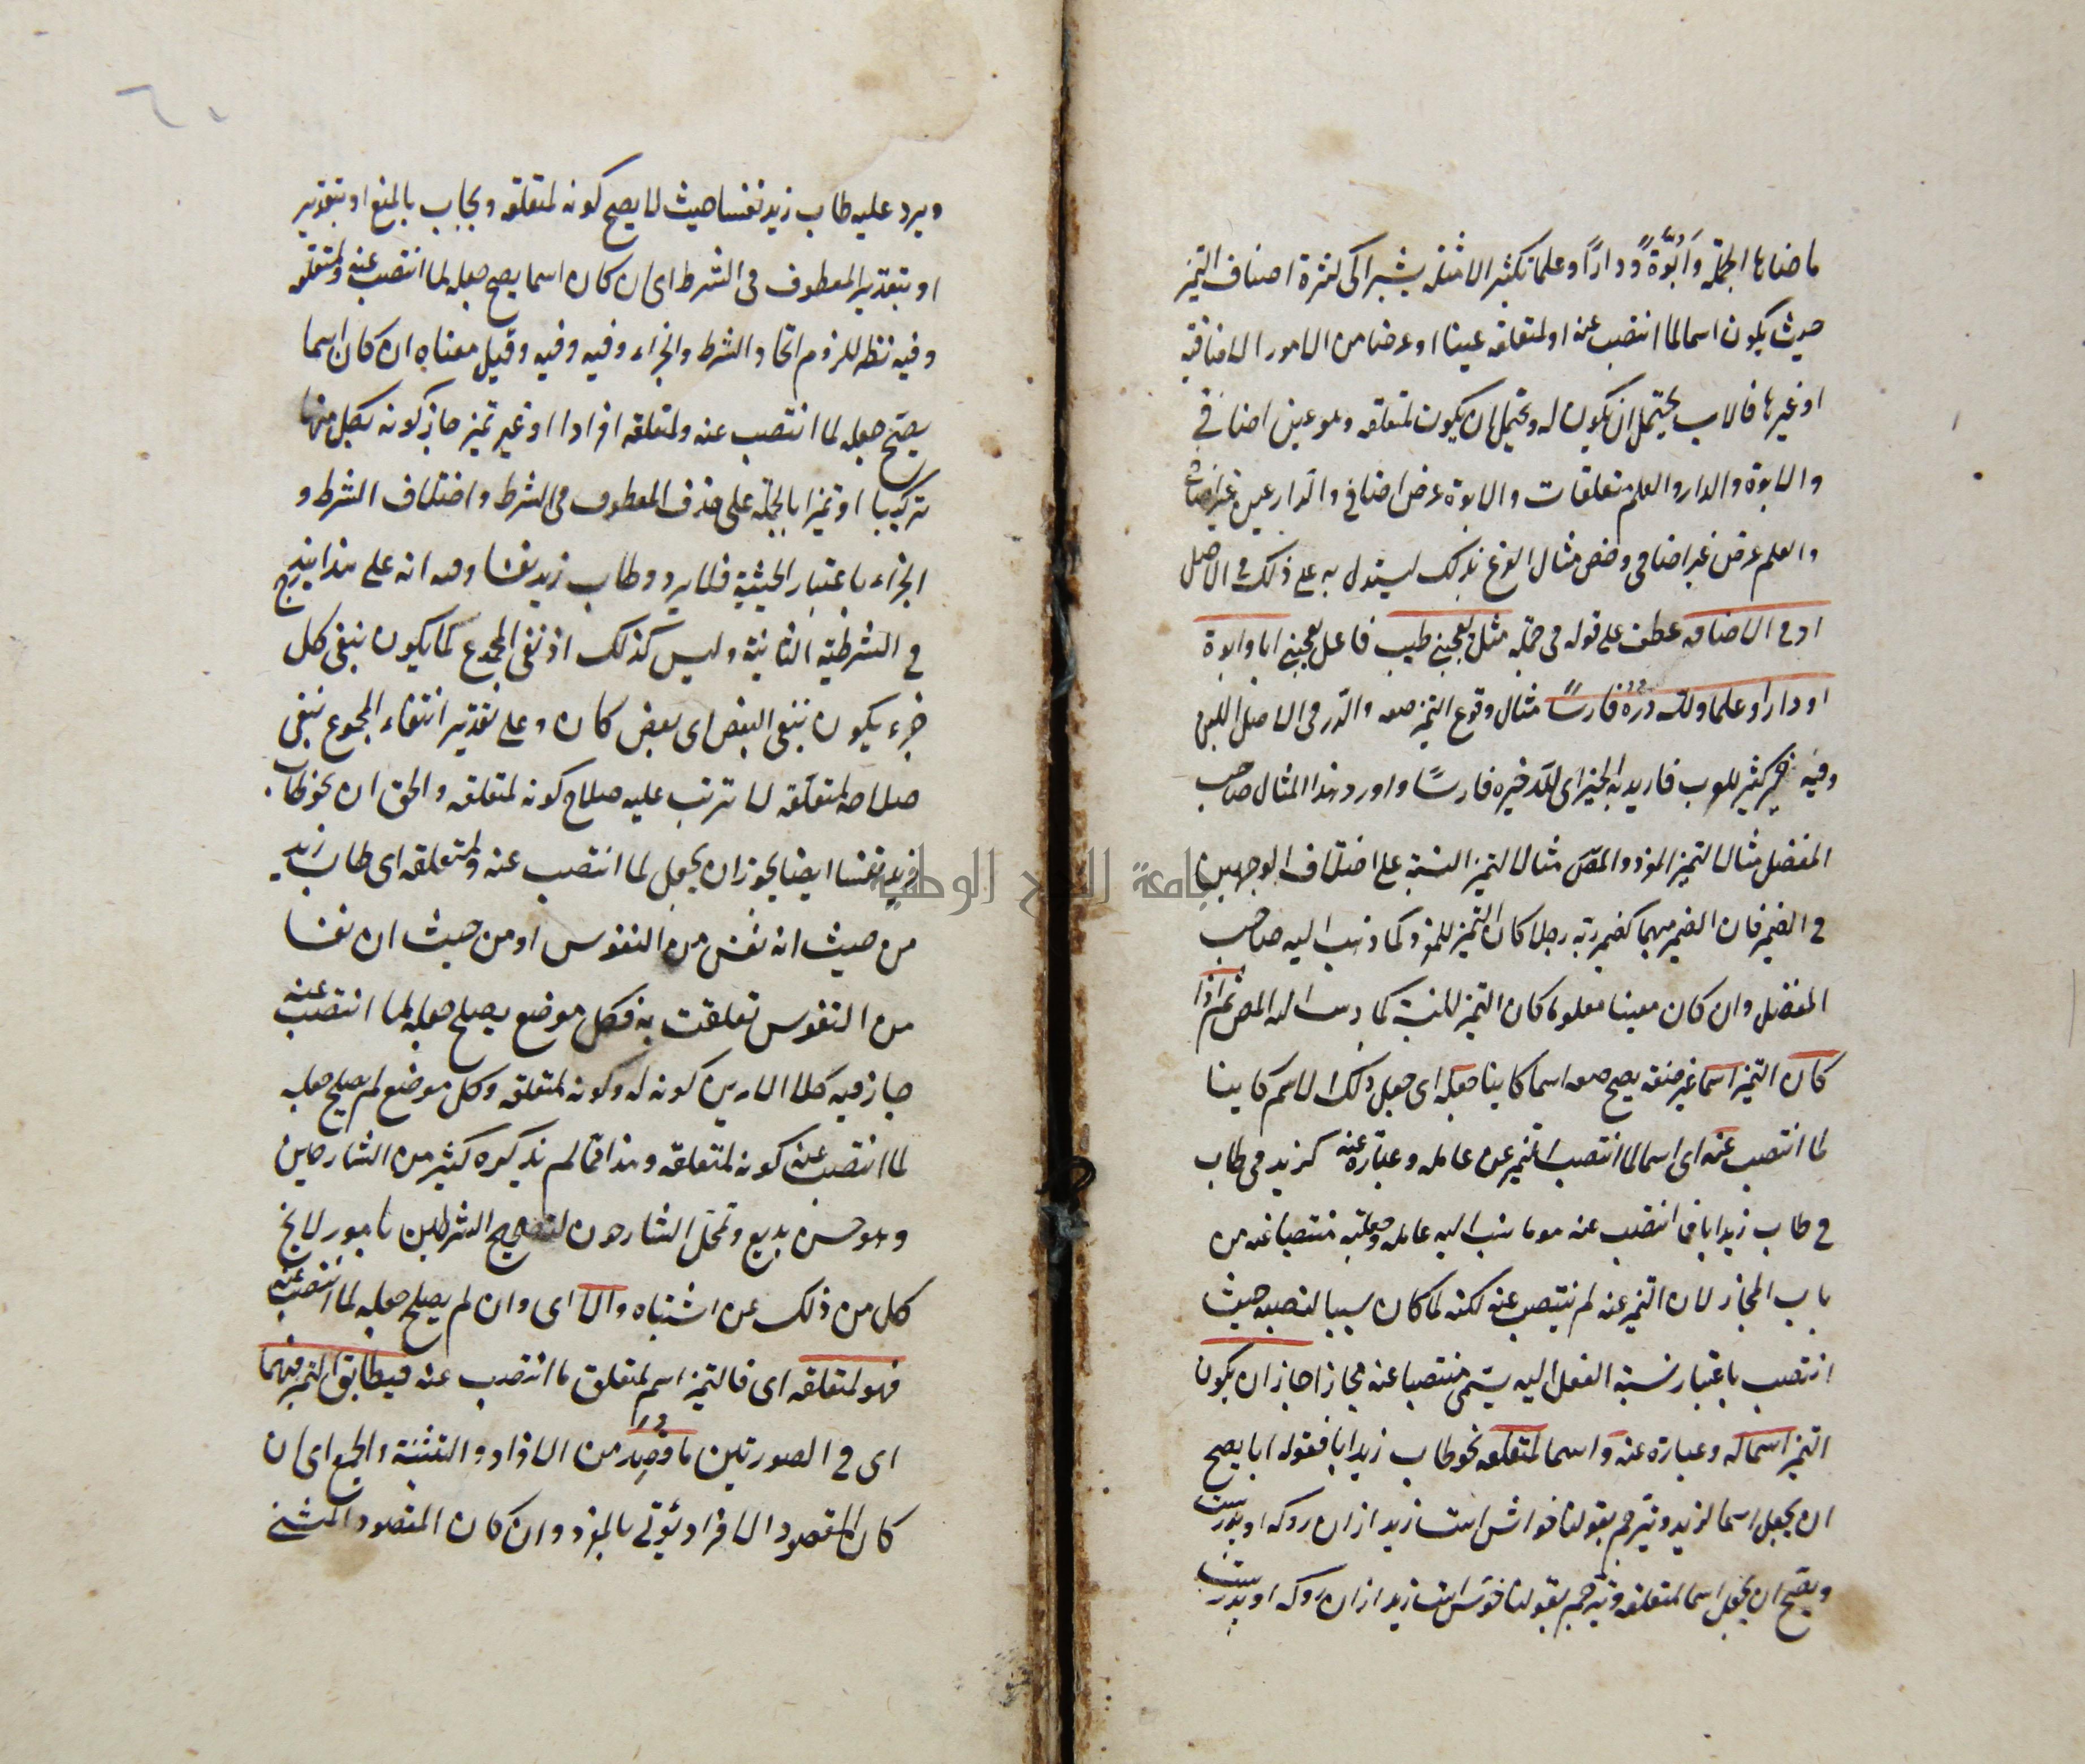 ما ضاهاها الجملة وَاُبُوَّةً ودارًا وعلما تكثير الامثلة يشير الى كثرة اصناف التميز
حيث يكون اسما لما انتصب عنه او لمتعلقه عينا او عرضا من الامور الاضافية
او غيرها فالاب يحتمل ان يكون له ويحتمل ان يكون لمتعلقه وهو عين اضافي
والابوة والدار والعلم متعلقات والابوة عرض اضافي والدار عين غير اضافي
والعلم عرض غير اضافي وخص مثال النوع بذلك ليستدل به على ذلك في الاصل
او في الاضافة عطف على قوله في جملة مثل يعجبني طيب فاعل يعجبني ابا وابوة
او دارا وعلما ولله دره فارسًا مثال وقوع التميز صفة والدر في الاصل اللبن
وفيه خير كثير للعرب فاريد به الخير اى لله خيره فارسًا واورد هذا المثال صاحب
المفصل مثالا لتميز المفرد والمص مثالا لتميز النسبة على اختلاف الوجهين
في الضمير فان الضمير مبهما كضمير ربه رجلا كان التميز للمفرد كما ذهب اليه صاحب
المفصل وان كان معينا معلوما كان التميز للنسبة كما ذهب اليه المص ثم اذا
كان التميز اسما غير صفة يصح جعله اسما كاينا جعله اى جعل ذلك الاسم كاينا
لما انتصب عنه اى اسما لما انتصب التميز عن عامله وعبارة عنه كزيد في طاب
في طاب زيد ابا فما انتصب عنه هو ما نسب اليه عامله وجعلته منتصبا عنه من
باب المجاز لان التميز عنه لم ينتصب عنه لكنه لما كان سببا لنصبه حيث
انتصب باعتبار نسبة الفعل اليه يسمى منتصبا عنه مجازا جاز ان يكون
التميز اسما له وعبارة عنه واسما لمتعلقه نحو طاب زيد ابا فقوله ابا يصح
ان يجعل اسما لزيد ويترجم بقولنا خوش است زيد از ان روكه او پدرست
ويصح ان يجعل اسما لمتعلقه ويترجم بقولنا خوش است زيد از ان روكه او پدرست
٦٠
ويرد عليه طاب زيد نفسا حيث لا يصح كونه لمتعلقه ويجاب بالمنع او بتقدير
او بتقدير المعطوف في الشرط اى ان كان اسما يصح جعله لما انتصب عنه ولمتعلقه
وفيه نظر للزوم اتحاد الشرط والجزاء وفيه وفيه وقيل معناه ان كان اسما
يصح جعله لما انتصب عنه ولمتعلقه افرادا او غير تميز جاز كونه لكل منهما
تركيبا او تميزا بالجملة على حذف المعطوف في الشرط واختلاف الشرط و
الجزاء باعتبار الحيثية فلا يرد وطاب زيد نفسا وفيه انه على هذا يندرج
في الشرطية الثانية وليس كذلك اذ نفى المجموع كما يكون بنفى كل
جزء يكون بنفى البعض اى بعض كان وعلى تقدير انتفاء المجموع بنفى
صلاحه لمتعلقه لا ترتب عليه صلاح كونه لمتعلقه والحق ان نحو طاب
زيد نفسا ايضا يجوز ان يجعل لما انتصب عنه ولمتعلقه اى طاب زيد
من حيث انه نفس من النفوس او من حيث ان نفسا
من النفوس تعلقت به فكل موضع يصلح جعله لما انتصب عنه
جاز فيه كلا الامرين كونه له وكونه لمتعلقه وكل موضع لم يصلح جعله
لما انتصب عنه كونه لمتعلقه وهذا مما لم يذكره كثير من الشارحين
وهو حسن بديع وتمحل الشارحون لتصحيح الشرطين بامور لا يخ
كل من ذلك عن اشتباه والا اى وان لم يصلح جعله لما انتصب عنه
فهو لمتعلقه اى فالتميز اسم لمتعلق ما انتصب عنه فيطابق التميز فيهما
اى في الصورتين ما قُصِد من الافراد والتثنية والجمع اى ان
كان المقصود الافراد يؤتى بالمفرد وان كان المقصود المثنى
جامعة النجاح الوطنية